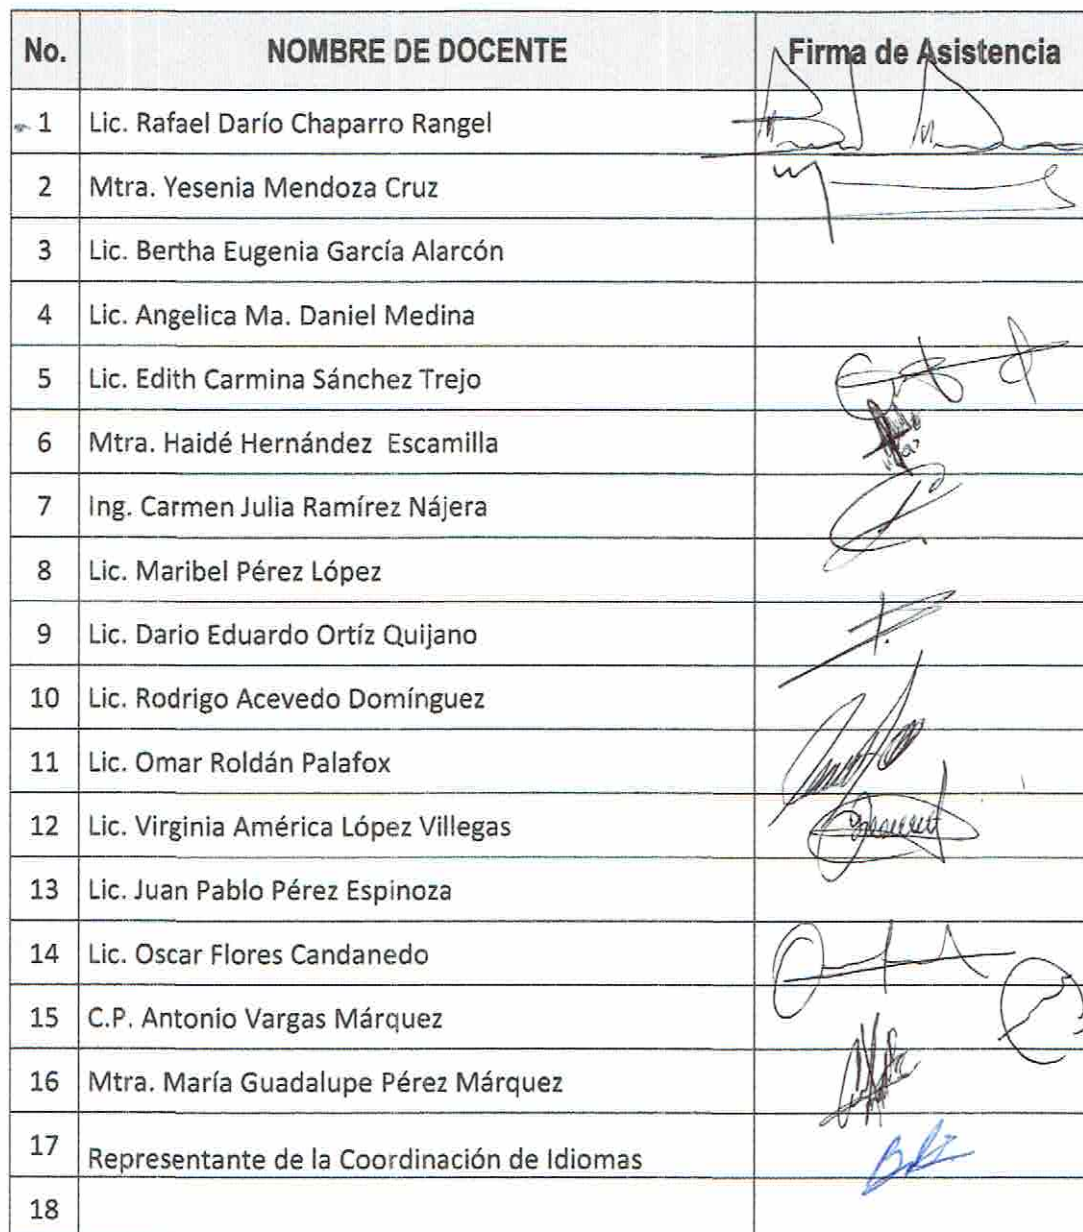 No. NOMBRE DE DOCENTE Firma de Asistencia
1 Lic. Rafael Darío Chaparro Rangel
2 Mtra. Yesenia Mendoza Cruz
3 Lic. Bertha Eugenia García Alarcón
4 Lic. Angelica Ma. Daniel Medina
5 Lic. Edith Carmina Sánchez Trejo
6 Mtra. Haidé Hernández Escamilla
7 Ing. Carmen Julia Ramírez Nájera
8 Lic. Maribel Pérez López
9 Lic. Dario Eduardo Ortíz Quijano
10 Lic. Rodrigo Acevedo Domínguez
11 Lic. Omar Roldán Palafox
12 Lic. Virginia América López Villegas
13 Lic. Juan Pablo Pérez Espinoza
14 Lic. Oscar Flores Candanedo
15 C.P. Antonio Vargas Márquez
16 Mtra. María Guadalupe Pérez Márquez
17 Representante de la Coordinación de Idiomas
18